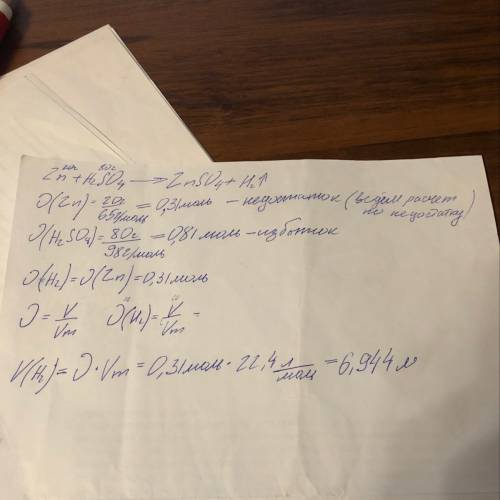 20г 80г
Zn + H₂SO₄ ⟶ ZnSO₄ + H₂↑
ν(Zn) = 20г / 65г/моль = 0,31 моль – недостаток (ведём расчет по недостатку)
ν(H₂SO₄) = 80г / 98г/моль = 0,81 моль – избыток
ν(H₂) = ν(Zn) = 0,31 моль
ν = V / Vm ν(H₂) = V / Vm =
V(H₂) = ν · Vm = 0,31 моль · 22,4 л / моль = 6,944 л